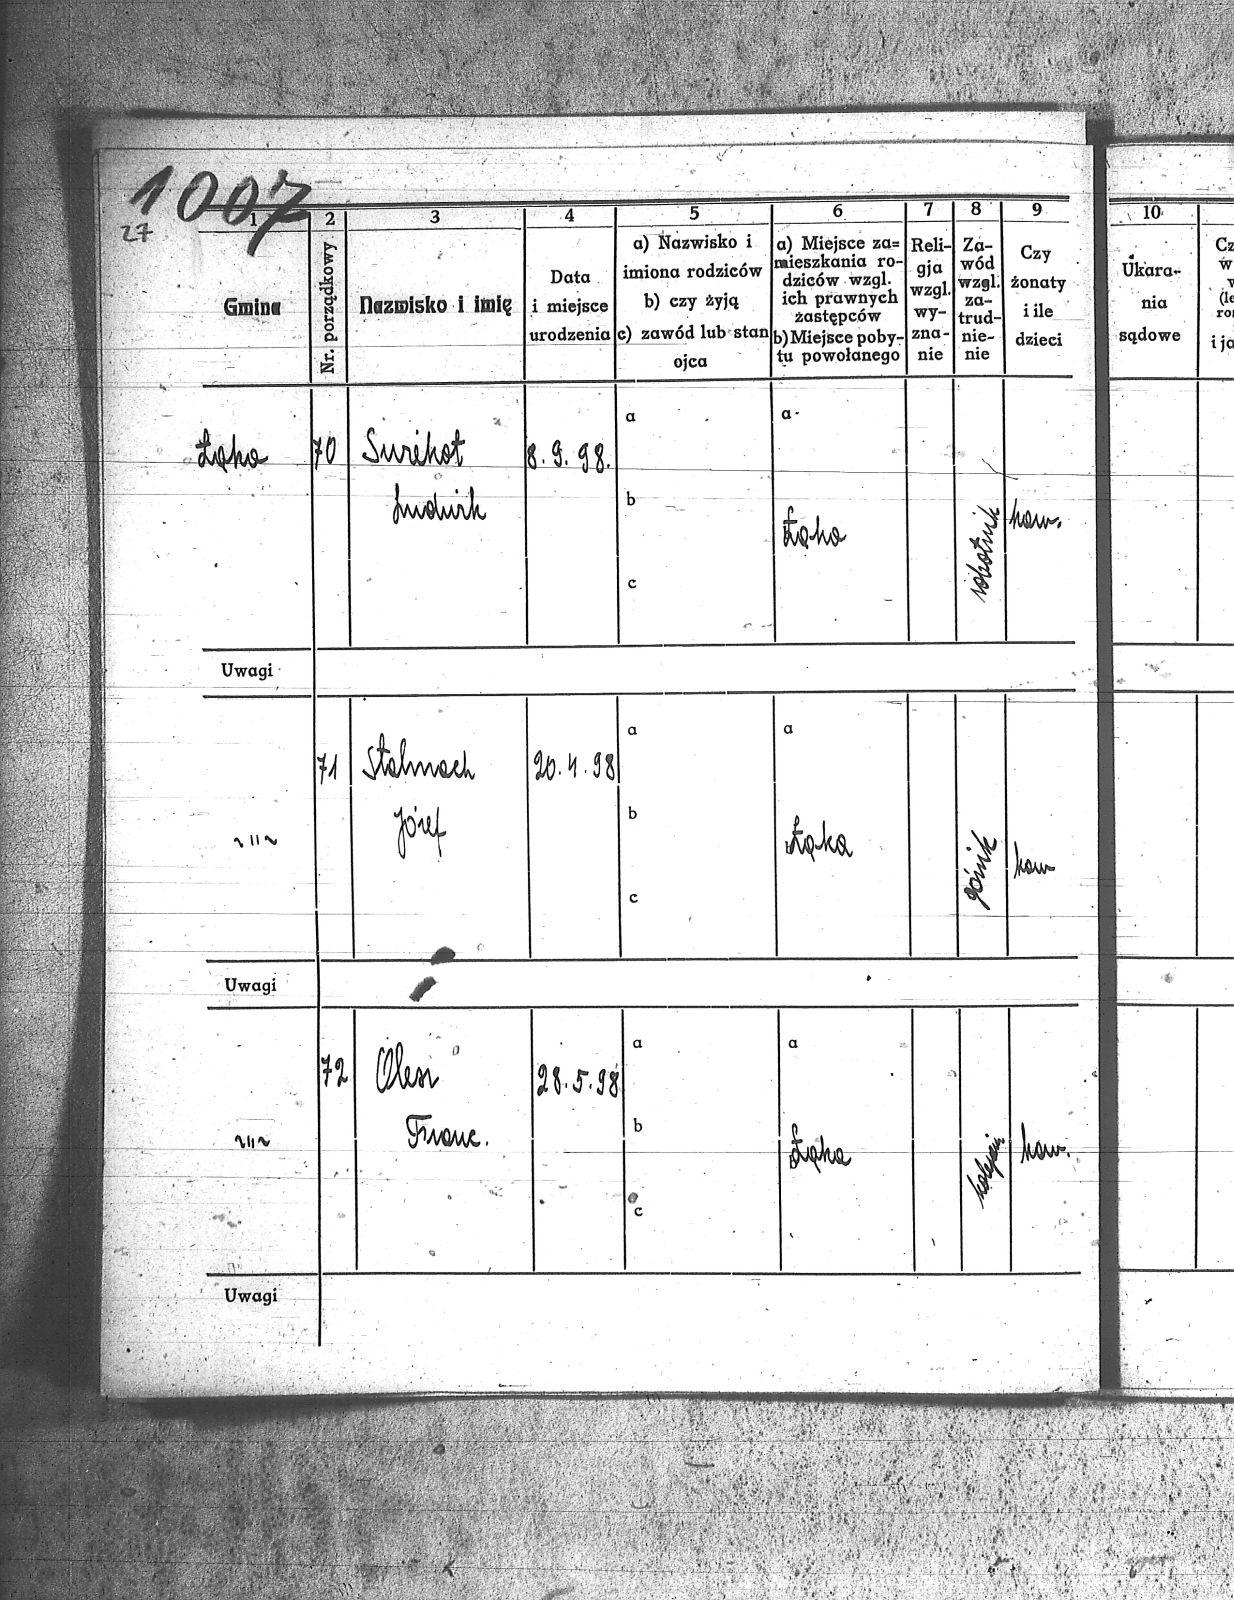 1007
27
1 2 3 4 5 6 7 8 9 10
Gmina
Nr. porządkowy
Nazwisko i imię
Data
i miejsce
urodzenia
a) Nazwisko i
imiona rodziców
b) czy żyją
c) zawód lub stan
ojca
a) Miejsce za=
mieszkania ro-
dziców wzgl.
ich prawnych
zastępców
b) Miejsce poby-
tu powołanego
Reli-
gja
wzgl.
wy-
zna-
nie
Za-
wód
wzgl.
za-
trud-
nie-
nie
Czy
żonaty
i ile
dzieci
Ukara-
nia
sądowe
Łąka 70
Ludwik
8. 9. 98.
a
b
c
a
Łąka
robotnik
kaw.
Uwagi
~ıı~
71 Stalmach
Józef
20. 4. 98
a
b
c
a
Łąka
górnik
kaw
Uwagi
~ıı~
72
Franc.
28. 5. 98
a
b
c
a
Łąka
kaw.
Uwagi